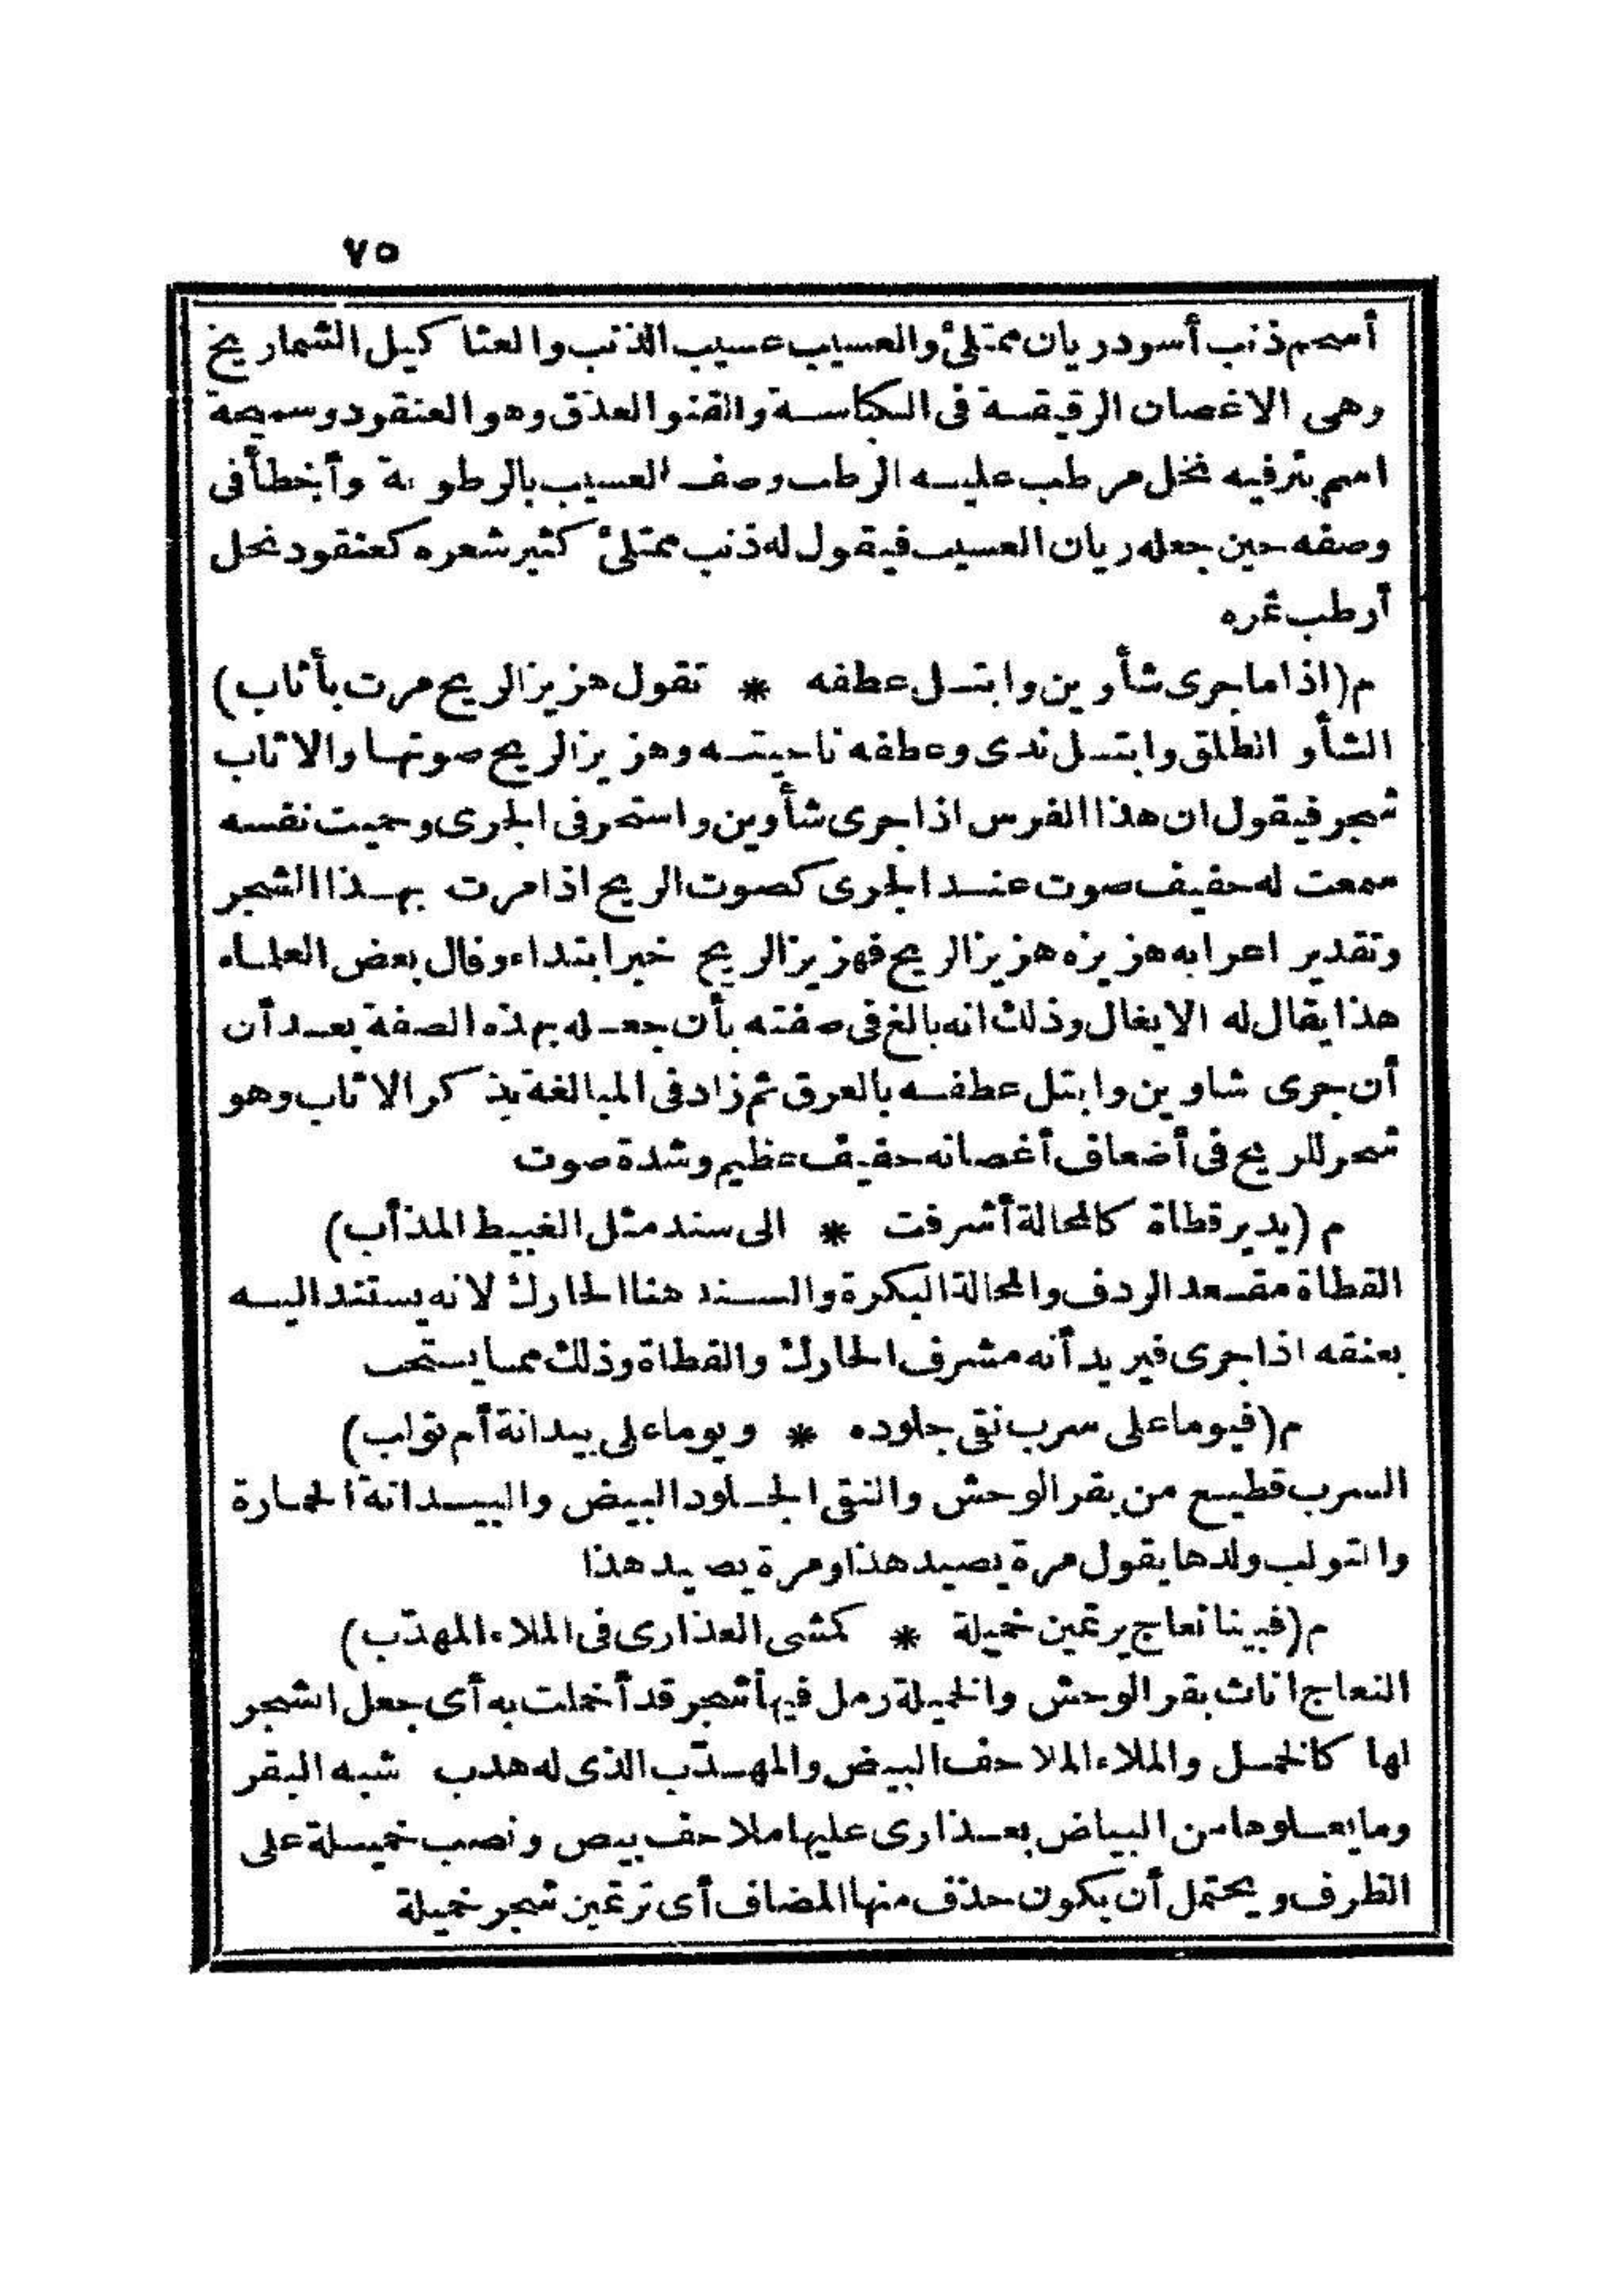 ٧٥
أسحم ذنب أسود ريان ممتلئ والعسيب عسيب الذنب والعثا كيل الشماريخ
وهى الاغصان الرقيقة فى الكباسة والقنو العذق وهو العنقود وسميحة
اسم بئر فيه نخل مرطب عليه الرطب وصف العسيب بالرطوبة وأخطأ فى
وصفه حين جعله ريان العسيب فيقول له ذنب ممتلئ كثير شعره كعنقود نخل
أرطب ثمره
م (اذا ما جرى شأوين وابتل عطفه * تقول هزيز الريح مرت بأثاب)
الشأو الطلق وابتل ندى وعطفه ناحيته وهزيز الريح صوتها والاثاب
شجر فيقول ان هذا الفرس اذا جرى شأوين واستحر فى الجرى وحميت نفسه
سمعت له حفيف صوت عند الجرى كصوت الريح اذا مرت بهذا الشجر
وتقدير اعرابه هزيزه هزيز الريح فهزيز الريح خبر ابتداء وقال بعض العلماء
هذا يقال له الايغال وذلك انه بالغ فى صفته بأن جعله بهذه الصفة بعد أن
أن جرى شاوين وابتل عطفه بالعرق ثم زاد فى المبالغة بذكر الاثاب وهو
شجر للريح فى أضعاف أغصانه حفيف عظيم وشدة صوت
م (يدير قطاة كالمحالة أشرفت * الى سند مثل الغبيط المذأب)
القطاة مقعد الردف والمحالة البكرة والسند هنا الحارك لانه يستند اليه
بعنقه اذا جرى فيريد أنه مشرف الحارك والقطاة وذلك مما يستحب
م (فيوما على سرب نقى جلوده * ويوما على بيدانة أم تولب)
السرب قطيع من بقر الوحش والنقى الجلود البيض والبيدانة الحمارة
والتولب ولدها يقول مرة يصيد هذا ومرة يصيد هذا
م (فبينا نعاج يرتعين خميلة * كمشى العذارى فى الملاء المهدّب)
النعاج اناث بقر الوحش والخميلة رمل فيها شجر قد أخملت به أى جعل الشجر
لها كالخمل والملاء الملاحف البيض والمهدّب الذى له هدب شبه البقر
وما يعلوها من البياض بعذارى عليها ملاحف بيض ونصب خميلة على
الظرف ويحتمل أن يكون حذف منها المضاف أى ترتعين شجر خميلة